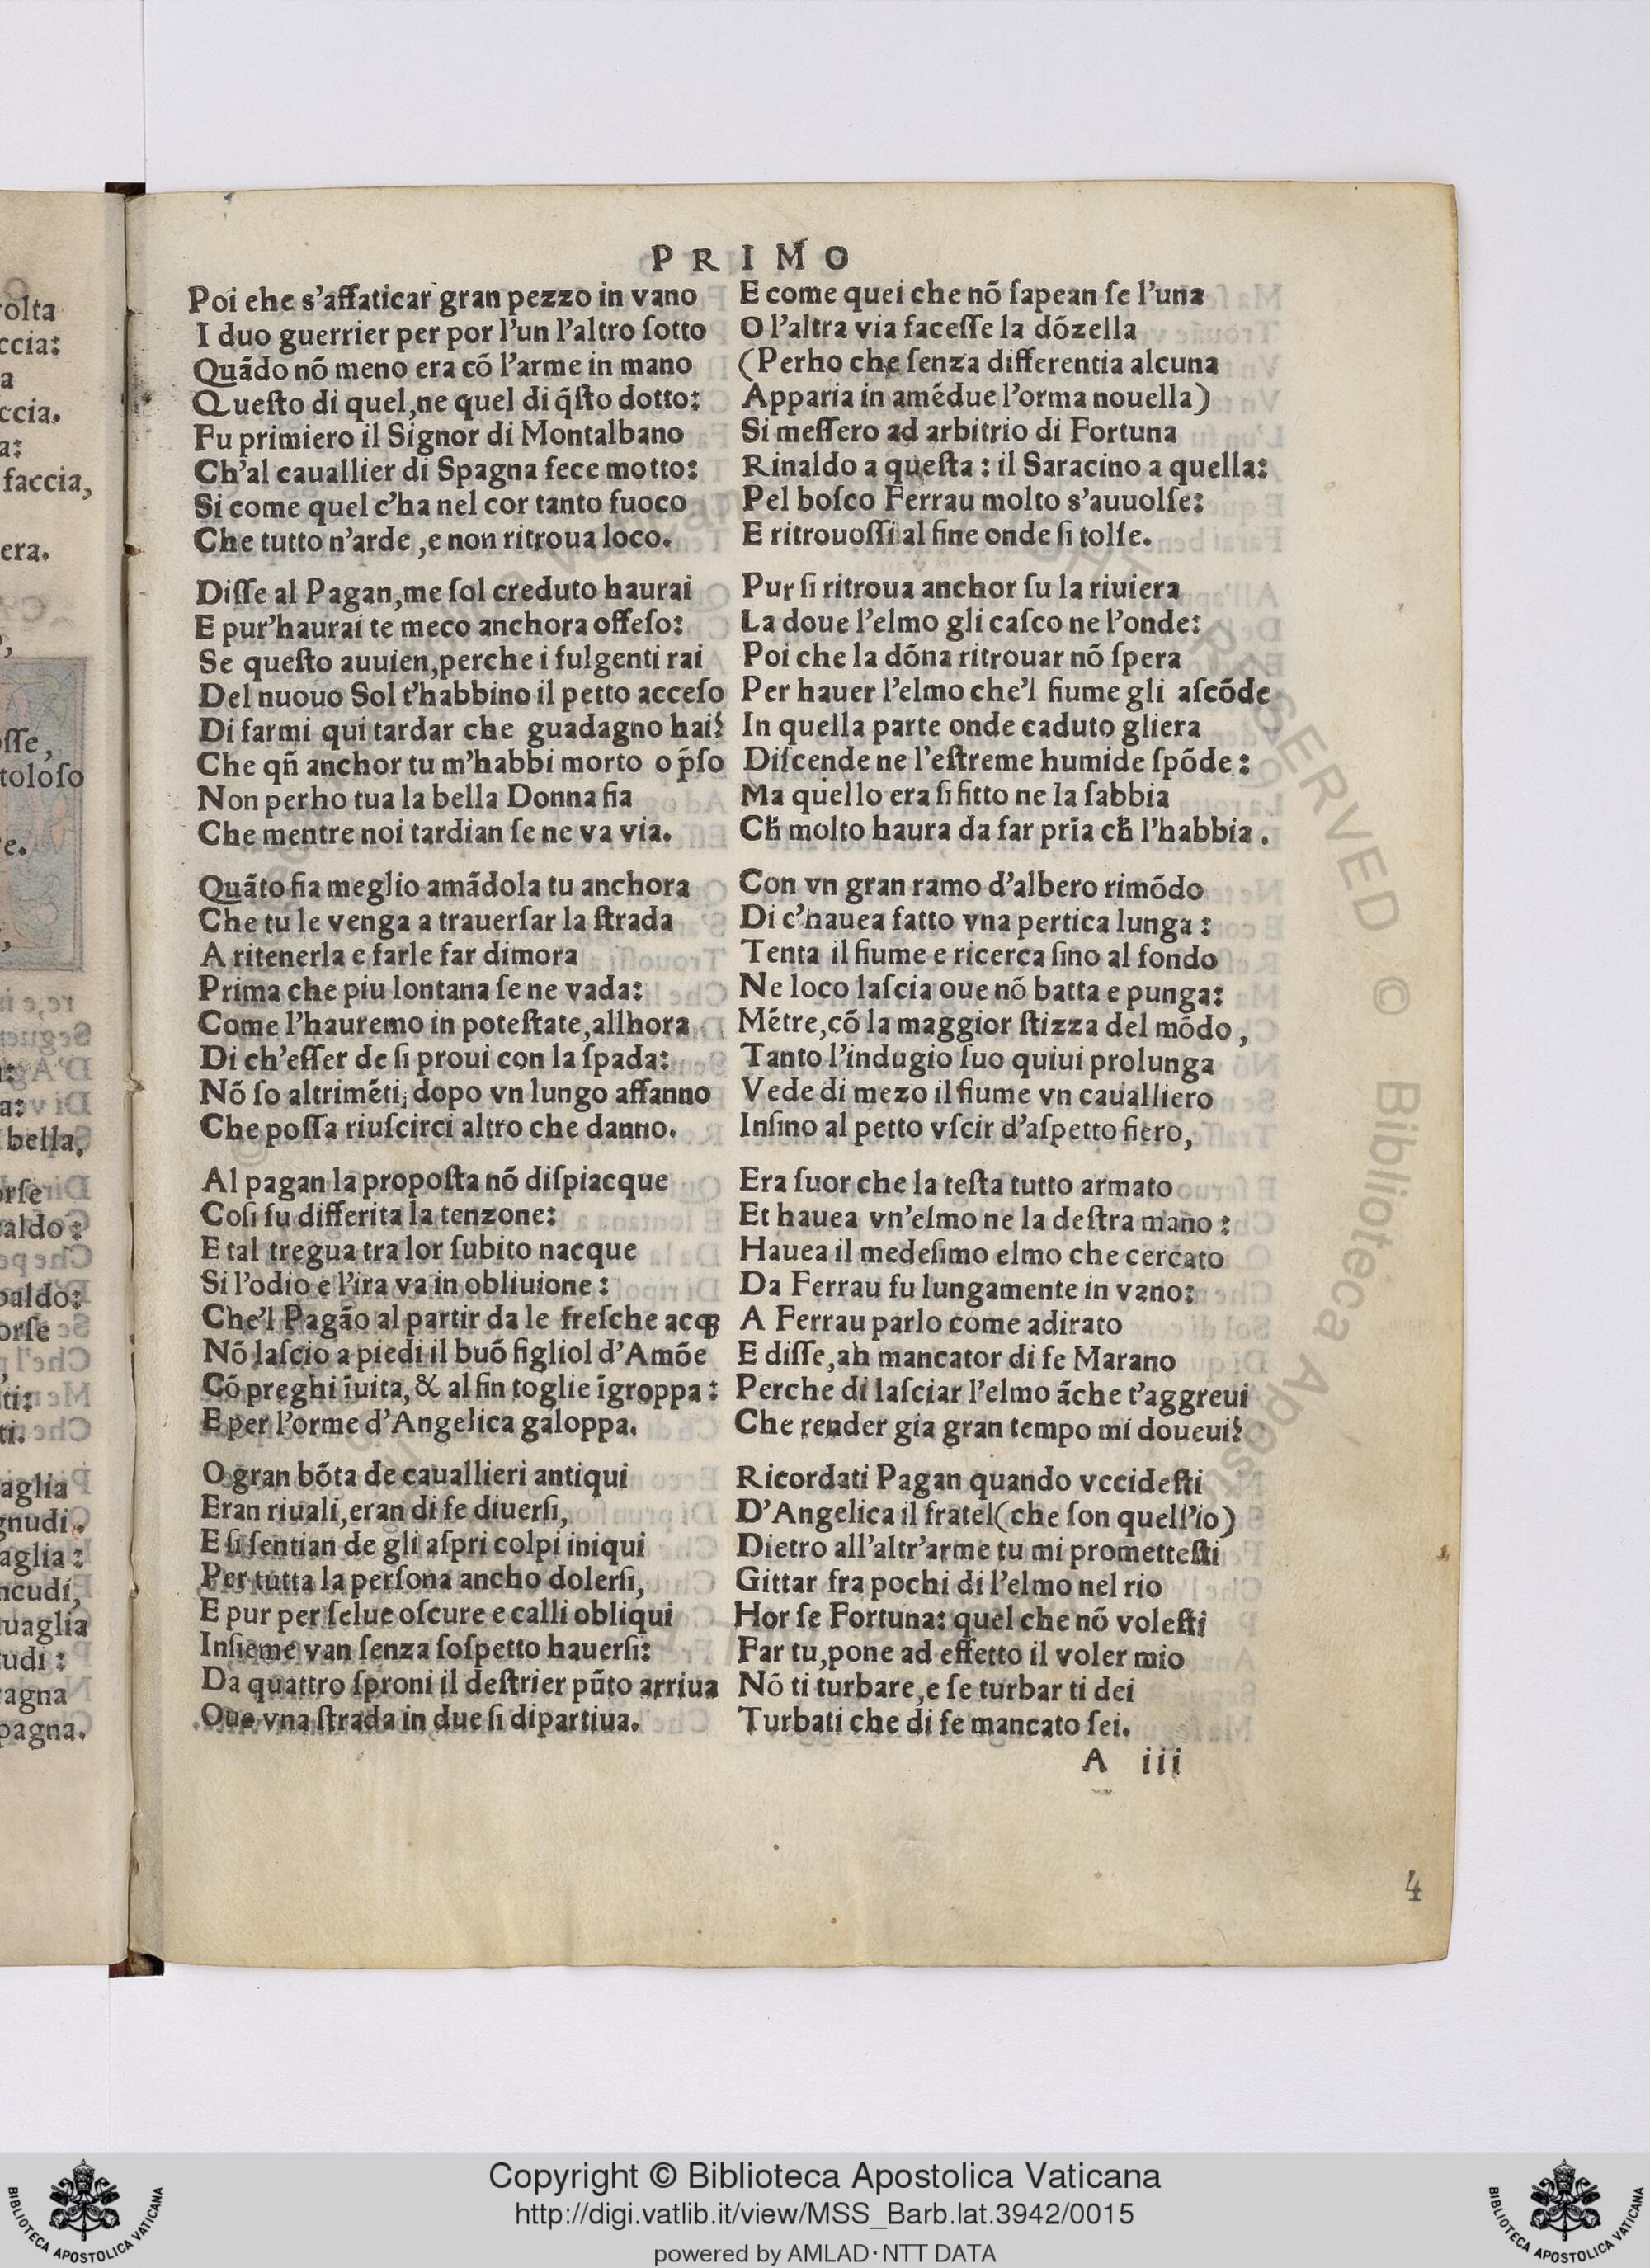 PRIMO
Poi ehe s'affaticar gran pezzo in vano
I duo guerrier per por l'un l'altro ſotto
Quãdo nõ meno era cõ l'arme in mano
Queſto di quel,ne quel di q̃ſto dotto:
Fu primiero il Signor di Montalbano
Ch'al cauallier di Spagna fece motto:
Si come quel c'ha nel cor tanto fuoco
Che tutto n'arde ,e non ritroua loco.
Diſſe al Pagan,me ſol creduto haurai
E pur'haurai te meco anchora offeſo:
Se queſto auuien,perche i fulgenti rai
Del nuouo Sol t'habbino il petto acceſo
Di farmi qui tardar che guadagno hai?
Che qñ anchor tu m'habbi morto o p̃ſo
Non perho tua la bella Donna fia
Che mentre noi tardian ſe ne va via.
Quãto fia meglio amãdola tu anchora
Che tu le venga a trauerſar la ſtrada
A ritenerla e farle far dimora
Prima che piu lontana ſe ne vada:
Come l'hauremo in poteſtate,allhora
Di ch'eſſer de ſi proui con la ſpada:
Nõ ſo altrimẽti, dopo vn lungo affanno
Che poſſa riuſcirci altro che danno.
Al pagan la propoſta nõ diſpiacque
Coſi fu differita la tenzone:
E tal tregua tra lor ſubito nacque
Si l'odio e l'ira va in obliuione :
Che'l Pagão al partir da le freſche acqȝ
Nõ laſcio a piedi il buõ figliol d'Amõe
Cõ preghi ĩuita, & al fin toglie ĩgroppa :
E per l'orme d'Angelica galoppa.
O gran bõta de cauallieri antiqui
Eran riuali,eran di fe diuerſi,
E ſi ſentian de gli aſpri colpi iniqui
Per tutta la perſona ancho dolerſi,
E pur per ſelue oſcure e calli obliqui
Inſieme van ſenza ſoſpetto hauerſi:
Da quattro ſproni il deſtrier pũto arriua
Oue vna ſtrada in due ſi dipartiua.
E come quei che nõ ſapean ſe l'una
O l'altra via faceſſe la dõzella
(Perho che ſenza differentia alcuna
Apparia in amẽdue l'orma nouella)
Si meſſero ad arbitrio di Fortuna
Rinaldo a queſta : il Saracino a quella:
Pel boſco Ferrau molto s'auuolſe:
E ritrouoſſi al fine onde ſi tolſe.
Pur ſi ritroua anchor ſu la riuiera
La doue l'elmo gli caſco ne l'onde:
Poi che la dõna ritrouar nõ ſpera
Per hauer l'elmo che'l fiume gli aſcõde
In quella parte onde caduto gliera
Diſcende ne l'eſtreme humide ſpõde :
Ma quello era ſi fitto ne la ſabbia
Cħ molto haura da far prĩa cħ l'habbia .
Con vn gran ramo d'albero rimõdo
Di c'hauea fatto vna pertica lunga :
Tenta il fiume e ricerca ſino al fondo
Ne loco laſcia oue nõ batta e punga:
Mẽtre,cõ la maggior ſtizza del mõdo ,
Tanto l'indugio ſuo quiui prolunga
Vede di mezo il fiume vn caualliero
Inſino al petto vſcir d'aſpetto fiero,
Era fuor che la teſta tutto armato
Et hauea vn'elmo ne la deſtra mano :
Hauea il medeſimo elmo che cercato
Da Ferrau fu lungamente in vano:
A Ferrau parlo come adirato
E diſſe,ah mancator di fe Marano
Perche di laſciar l'elmo ãche t'aggreui
Che render gia gran tempo mi doueui?
Ricordati Pagan quando vccideſti
D'Angelica il fratel(che ſon quell'io)
Dietro all'altr'arme tu mi prometteſti
Gittar fra pochi di l'elmo nel rio
Hor ſe Fortuna: quel che nõ voleſti
Far tu,pone ad effetto il voler mio
Nõ ti turbare,e ſe turbar ti dei
Turbati che di fe mancato ſei.
A iii
4
Copyright © Biblioteca Apostolica Vaticana
http://digi.vatlib.it/view/MSS_Barb.lat.3942/0015
powered by AMLAD·NTT DATA
BIBLIOTECA APOSTOLICA VATICANA
BIBLIOTECA APOSTOLICA VATICANA